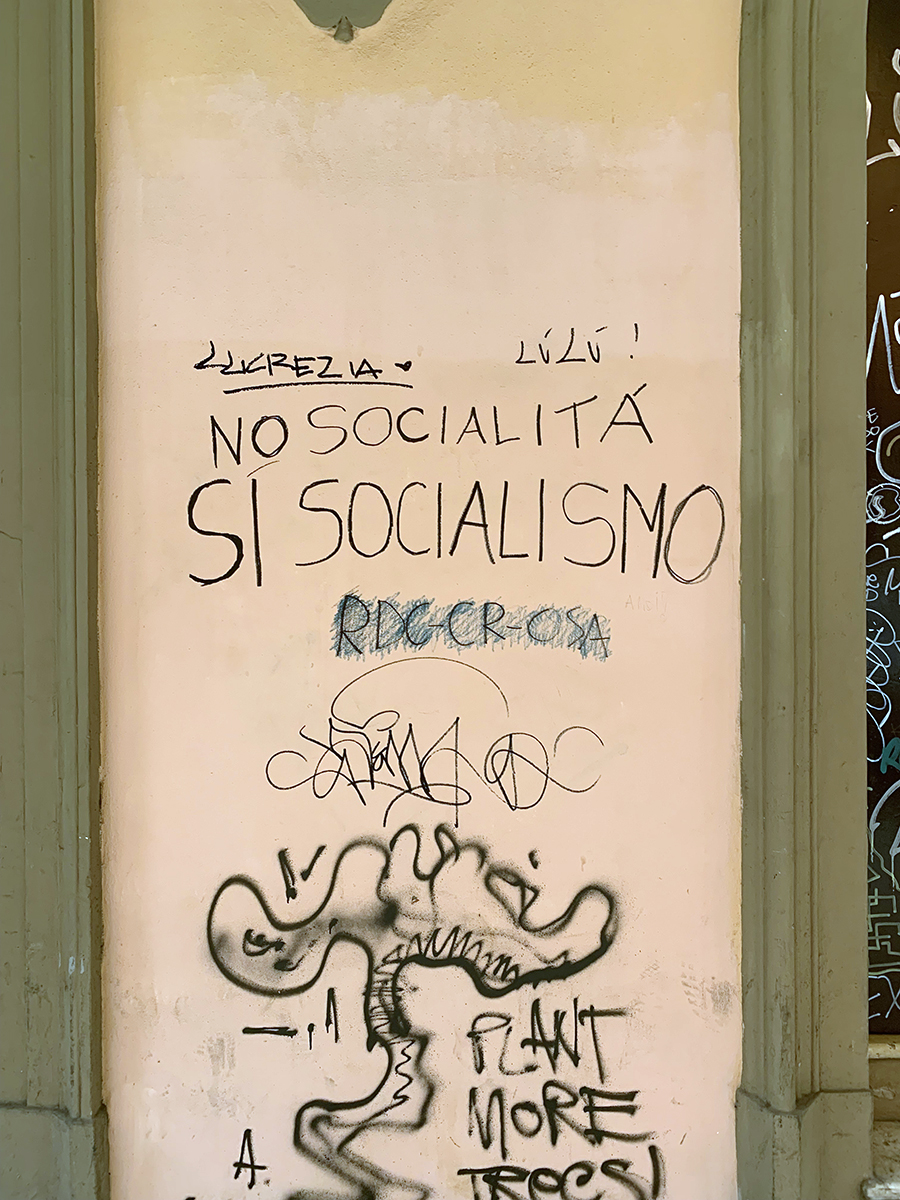 LUCREZIA
LÚLÚ !
NO SOCIALITÁ
SÍ SOCIALISMO
RDC-CR-OSA
PLANT
MORE
A